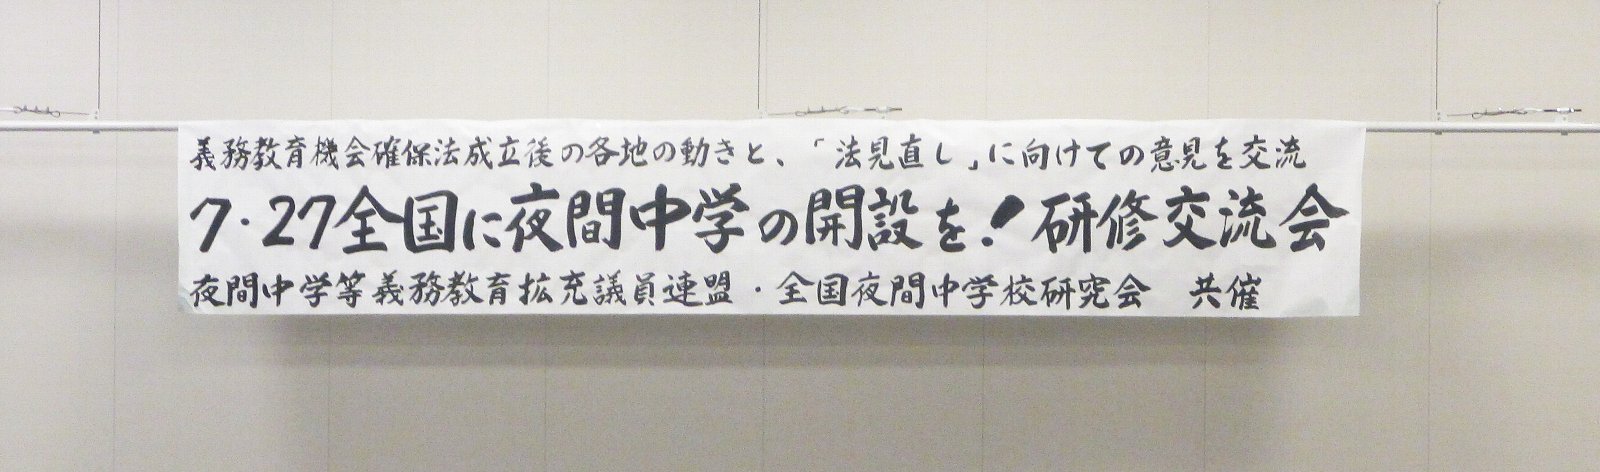 義務教育機会確保法成立後の各地の動きと、「法見直し」に向けての意見を交流
7・27全国に夜間中学の開設を!研修交流会
夜間中学等義務教育拡充議員連盟・全国夜間中学校研究会 共催